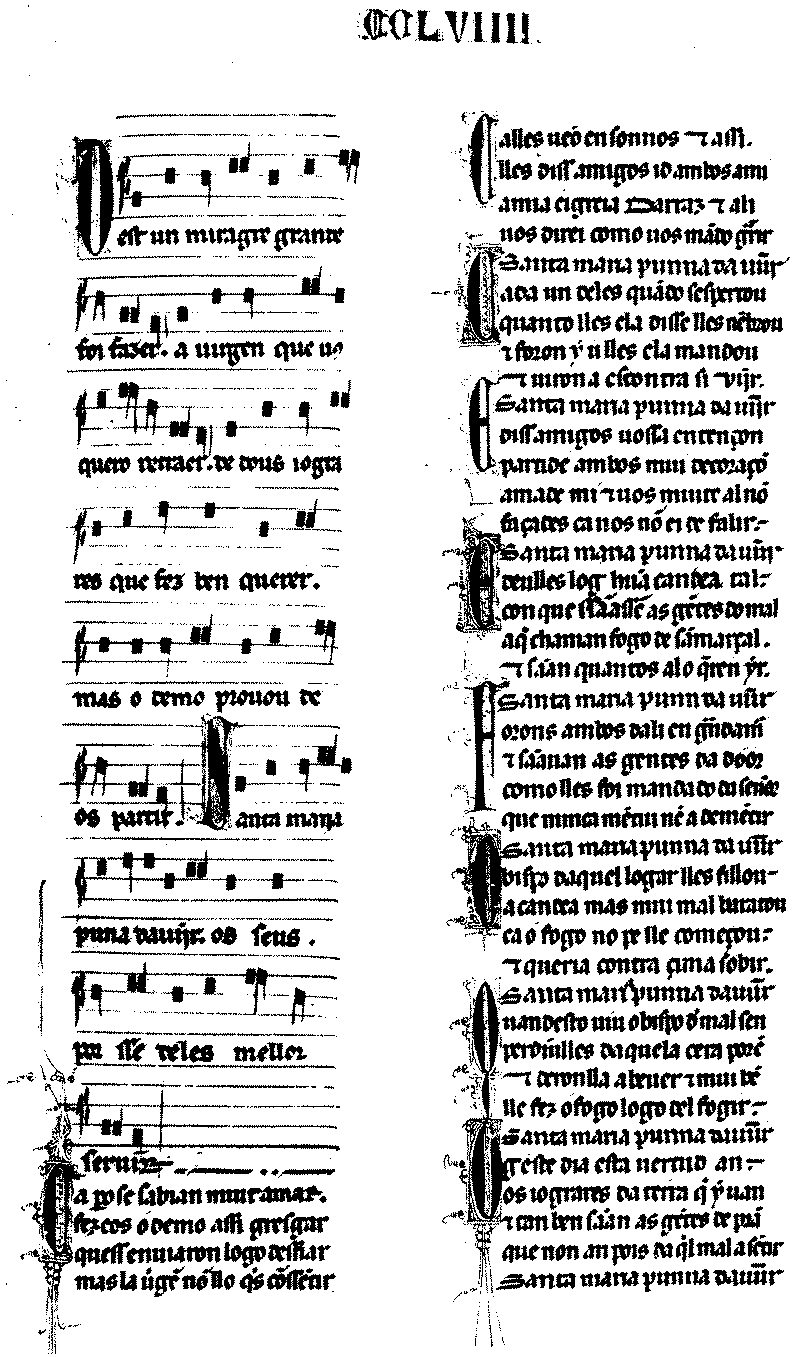 CCLVIIII
Dest un miragre grande
foi fazer. a uirgen que uo
quero retraer. de dous iogra
res que fez ben querer.
mas o demo prouou de
os partir. Santa maria
puna dauijr. os seus.
por sse deles mellor
seruir
a pose sabian muit amar.
fez eos o demo assi gresgar
quess enuiaron logo desfiar
mas la uigẽ nõ llo qis cõssẽtir
alles ueo en sonnos ⁊ assi.
lles diss. amigos id ambos ami
a mia eigreia Darraz ⁊ ali
uos direi como uos mãdo
Santa maria punna da uijr
ada un deles quãdo sespertou
quanto lles ela disse lles nẽbrou
⁊ foron y u lles ela mandou
⁊ uirona escontra si vijr.
Santa maria punna da uijr
diss. amigos uossa entençon
partide ambos mui de coraçõ
amade mi ⁊ uos muite al nõ
façades ca nos nõ ei de falir.
Santa maria punna da uijr
deulles log hũa candea tal
con que sãassẽ as gẽtes do mal
a q̃ chaman fogo de sã marçal.
⁊ sãan quantos alo q̃ren yr.
Santa maria punna da uijr
oron s ambos dali en
⁊ sãauan as gentes da door
como lles foi mandado da señor
que nunca mẽtiu nẽ a de mẽtir
Santa maria punna da uijr
bispo daquel logar lles fillou
a candea mas mui mal baratou
ca o fogo no pe lle começou
⁊ queria contra çima sobir.
Santa maria punna da uijr
uan desto uiu o bispo d̃ mal sen
perdiulles daquela cera porẽ
⁊ deronlla a beuer ⁊ mui bẽ
lle fez o fogo logo del fogir.
Santa maria punna da uijr
geste dia esta uertud an
os iograres da terra q̃ y uan
⁊ tan ben sãan as gẽtes de prã
que non an pois daq̃l mal a sẽtir
Santa maria punna da uijr